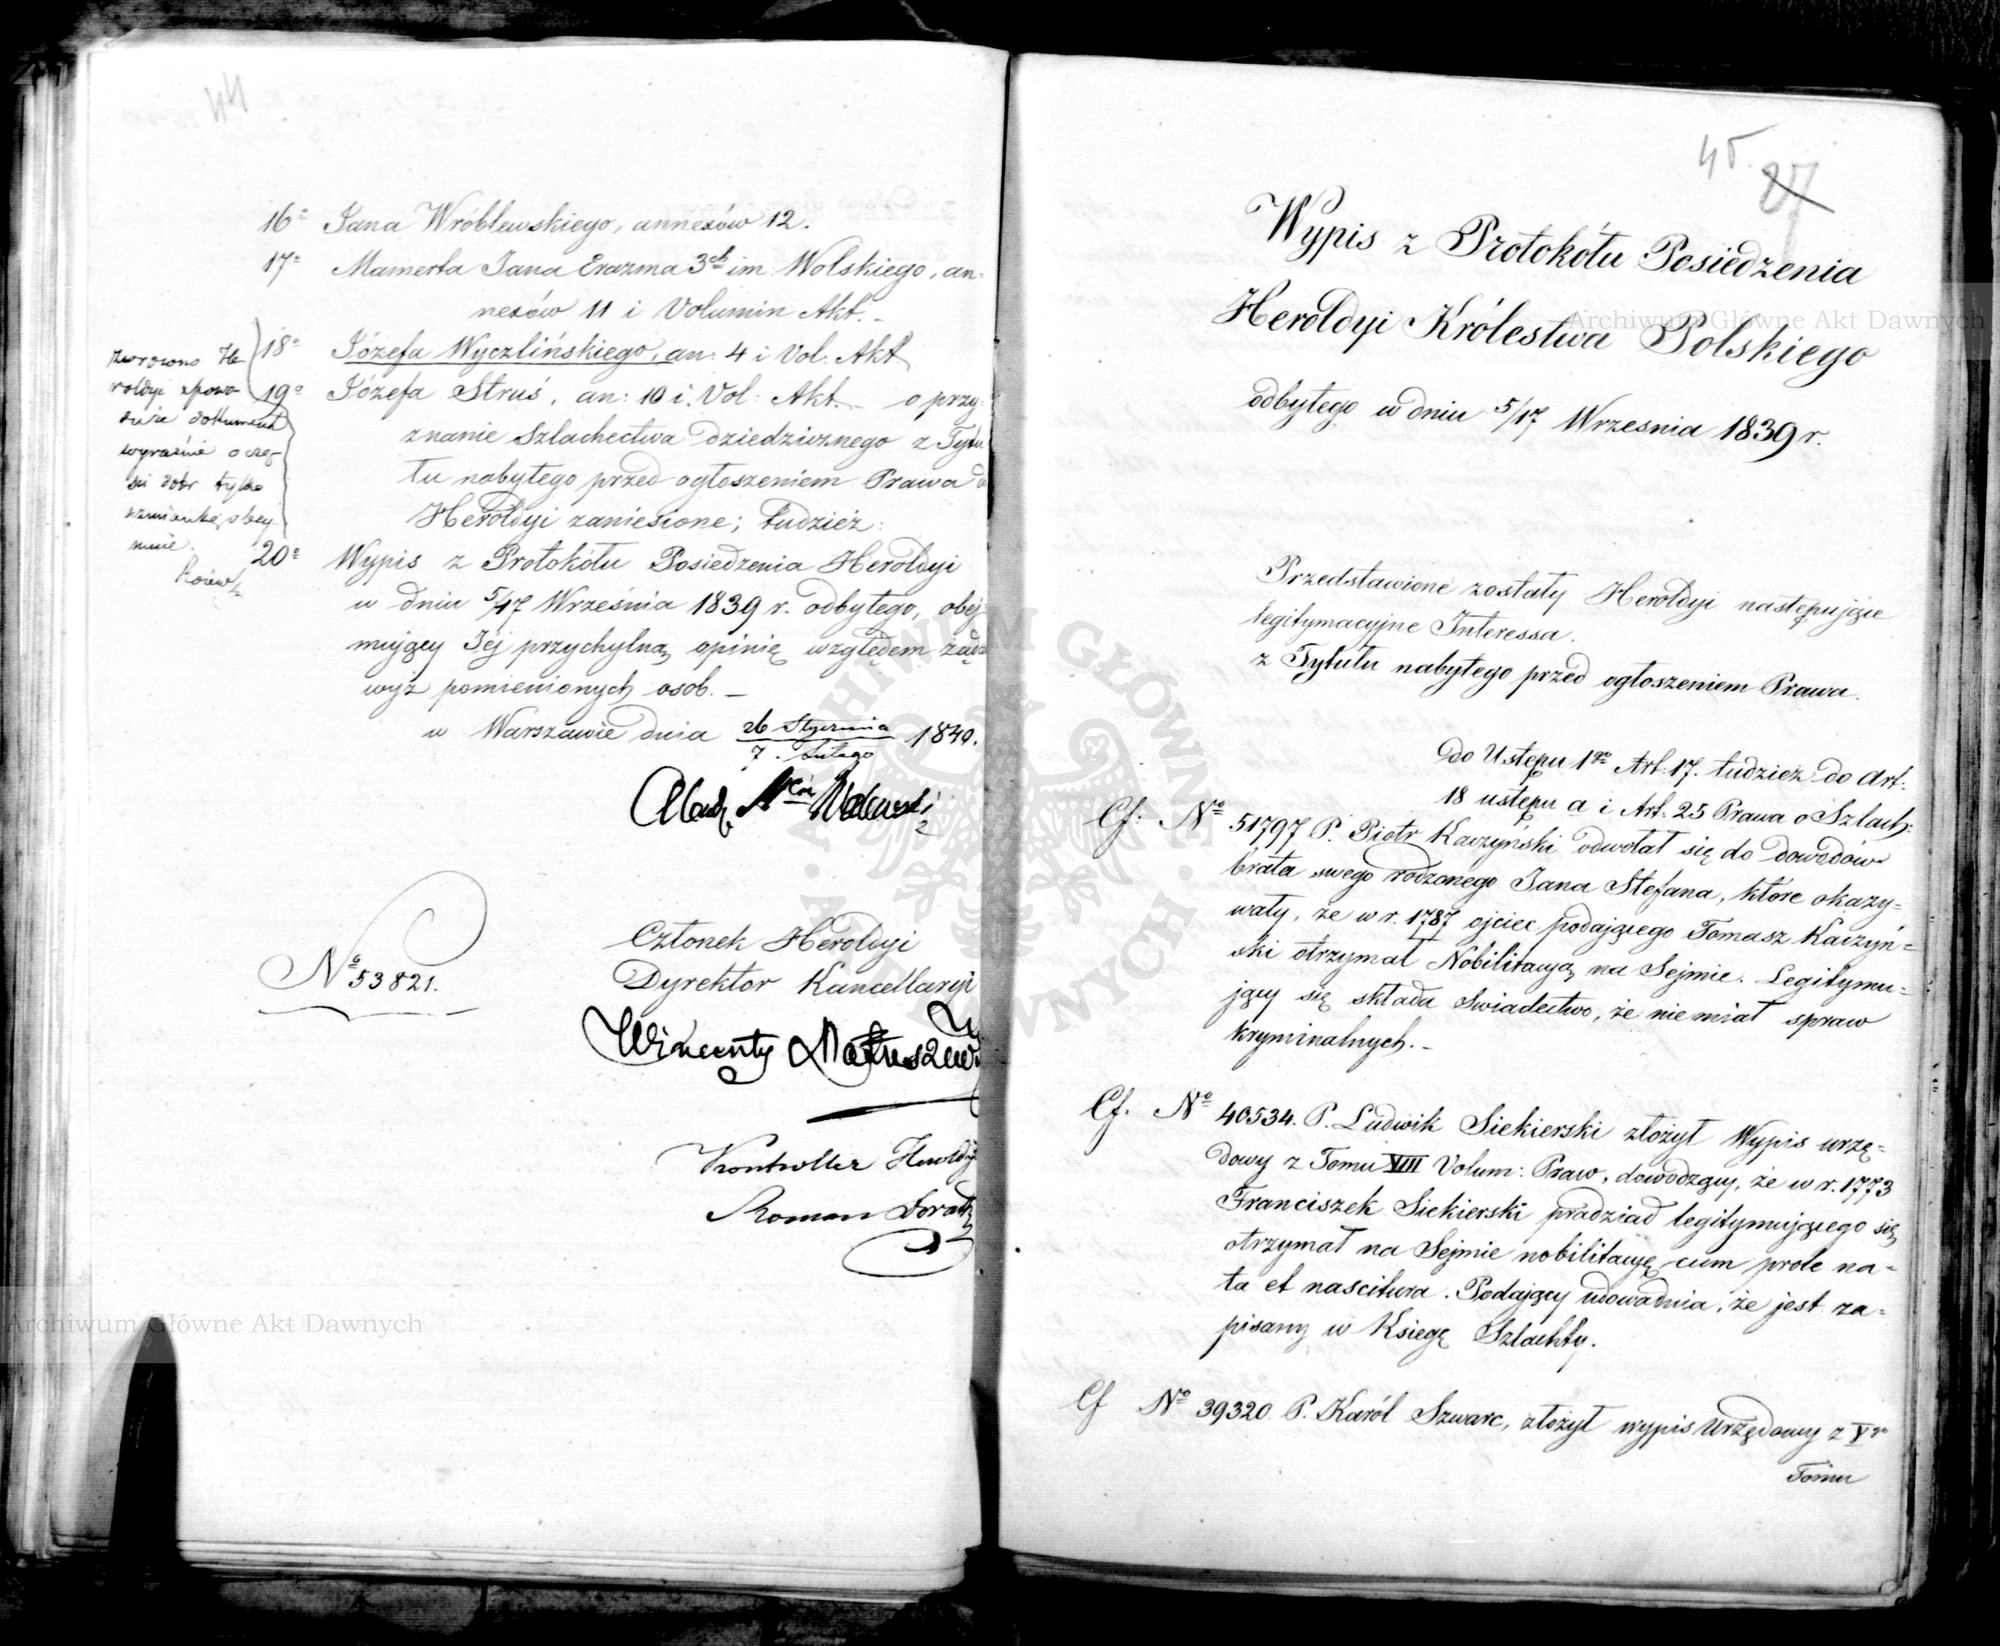 44
16º Jana Wróblewskiego, annexów 12.
17º Mamerta Jana Erazma 3ch im: Wolskiego, an-
nexów 11 i Volumin Akt. -
18º Józefa Wyczlińskiego, an: 4 i Vol. Akt
19º Józefa Struś, an: 10 i Vol: Akt. - o przy-
znanie Szlachectwa dziedzicznego z Tytu
łu nabytego przed ogłoszeniem Prawa d
Heroldyi zaniesione; tudzież:
20º Wypis z Protokółu Posiedzenia Heroldyi
w dniu 5/17 Września 1839 r. odbytego, obej
mujący Jéj przychylną opinię względem żąda
wyż pomienionych osób. -
w Warszawie dnia 26 Stycznia / 7. Lutego 1840.
zwrócono He
roldyi z powo
du że dokument
wyraźnie o czę-
ści dóbr tylko
wzmiankę obej
muie.
Członek Heroldyi
Dyrektor Kancellaryi
Nº 53821.
Wincenty Matuszew
Kontroller Heroldyi
Roman
45. 27
Wypis z Protokółu Posiedzenia
Heroldyi Królestwa Polskiego
odbytego w dniu 5/17 Wrzesnia 1839 r.
Przedstawione zostały Heroldyi następujące
legitymacyjne Interessa.
z Tytułu nabytego przed ogłoszeniem Prawa.
do Ustępu 1go Art: 17. tudzież do Art:
18 ustępu a i Art: 25 Prawa o Szlach:
Cf: Nº 51797 P. Piotr Kaczyński odwołał się do dowodów
brata swego rodzonego Jana Stefana, które okazy-
wały, że w r. 1787 ojciec podającego Tomasz Kaczyń-
ski otrzymał Nobilitacyą na Sejmie. Legitymu-
jący się składa Swiadectwo, że nie miał spraw
kryminalnych. -
Cf. Nº 40534. P. Ludwik Siekierski złożył Wypis urzę-
dowy z Tomu VIII Volum: Praw, dowodzący, że w r. 1773
Franciszek Siekierski pradziad legitymującego się
otrzymał na Sejmie nobilitacyę cum prole na-
ta et nascitura. Podający udowadnia, że jest za-
pisany w Księgę Szlachty.
Cf Nº 39320. P. Karól Szwarc, złożył wypis Urzędowy z Vgo
Tomu
Archiwum Główne Akt Dawnych
Archiwum Główne Akt Dawnych
ARCHIWUM GŁÓWNE AKT DAWNYCH